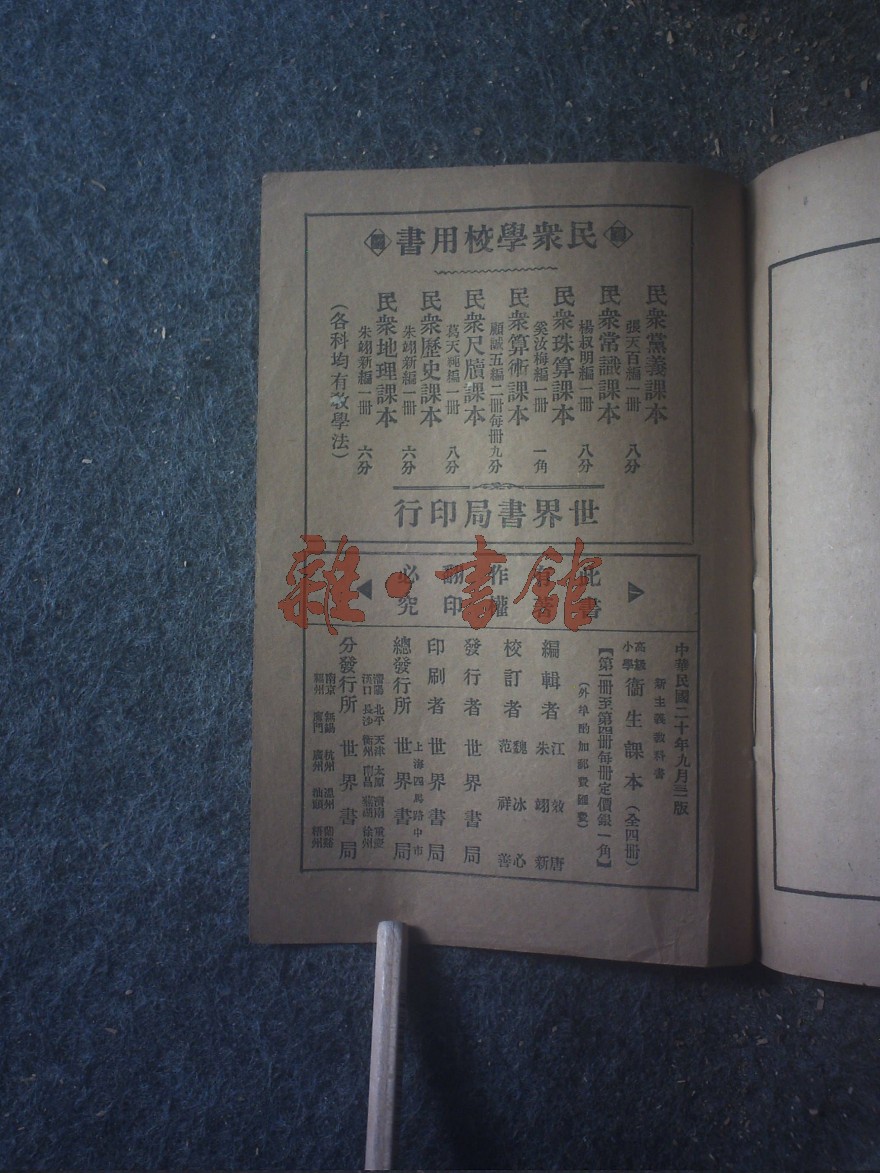 民衆學校用書
民衆黨義課本
張天百編一冊 八分
民衆常識課本
楊叔明編一冊 八分
民衆珠算課本
奚汝梅編一冊 一角
民衆算術課本
顧誠五編二冊每冊九分
民衆尺牘課本
葛天編一冊 八分
民衆歷史課本
朱翊新編一冊 六分
民衆地理課本
朱翊新編一冊 六分
(各科均有教學法)
世界書局印行
此書有著作權翻印必究
雜·書館
中華民國二十年九月三版
新主義教科書
高級小學 衞生課本(全四冊)
【第一冊至第四冊每冊定價銀一角】
(外埠酌加郵費匯費)
編輯者 江效唐 朱翊新
校訂者 魏冰心 范祥善
發行者 世界書局
印刷者 世界書局
上海四馬路中市
總發行所 世界書局
瀋陽 北平 天津 太原 濟南 重慶
漢口 長沙 衡州 南昌 蕪湖 徐州
分發行所 世界書局
南京 無錫 杭州 溫州
福州 廈門 廣州 汕頭 梧州